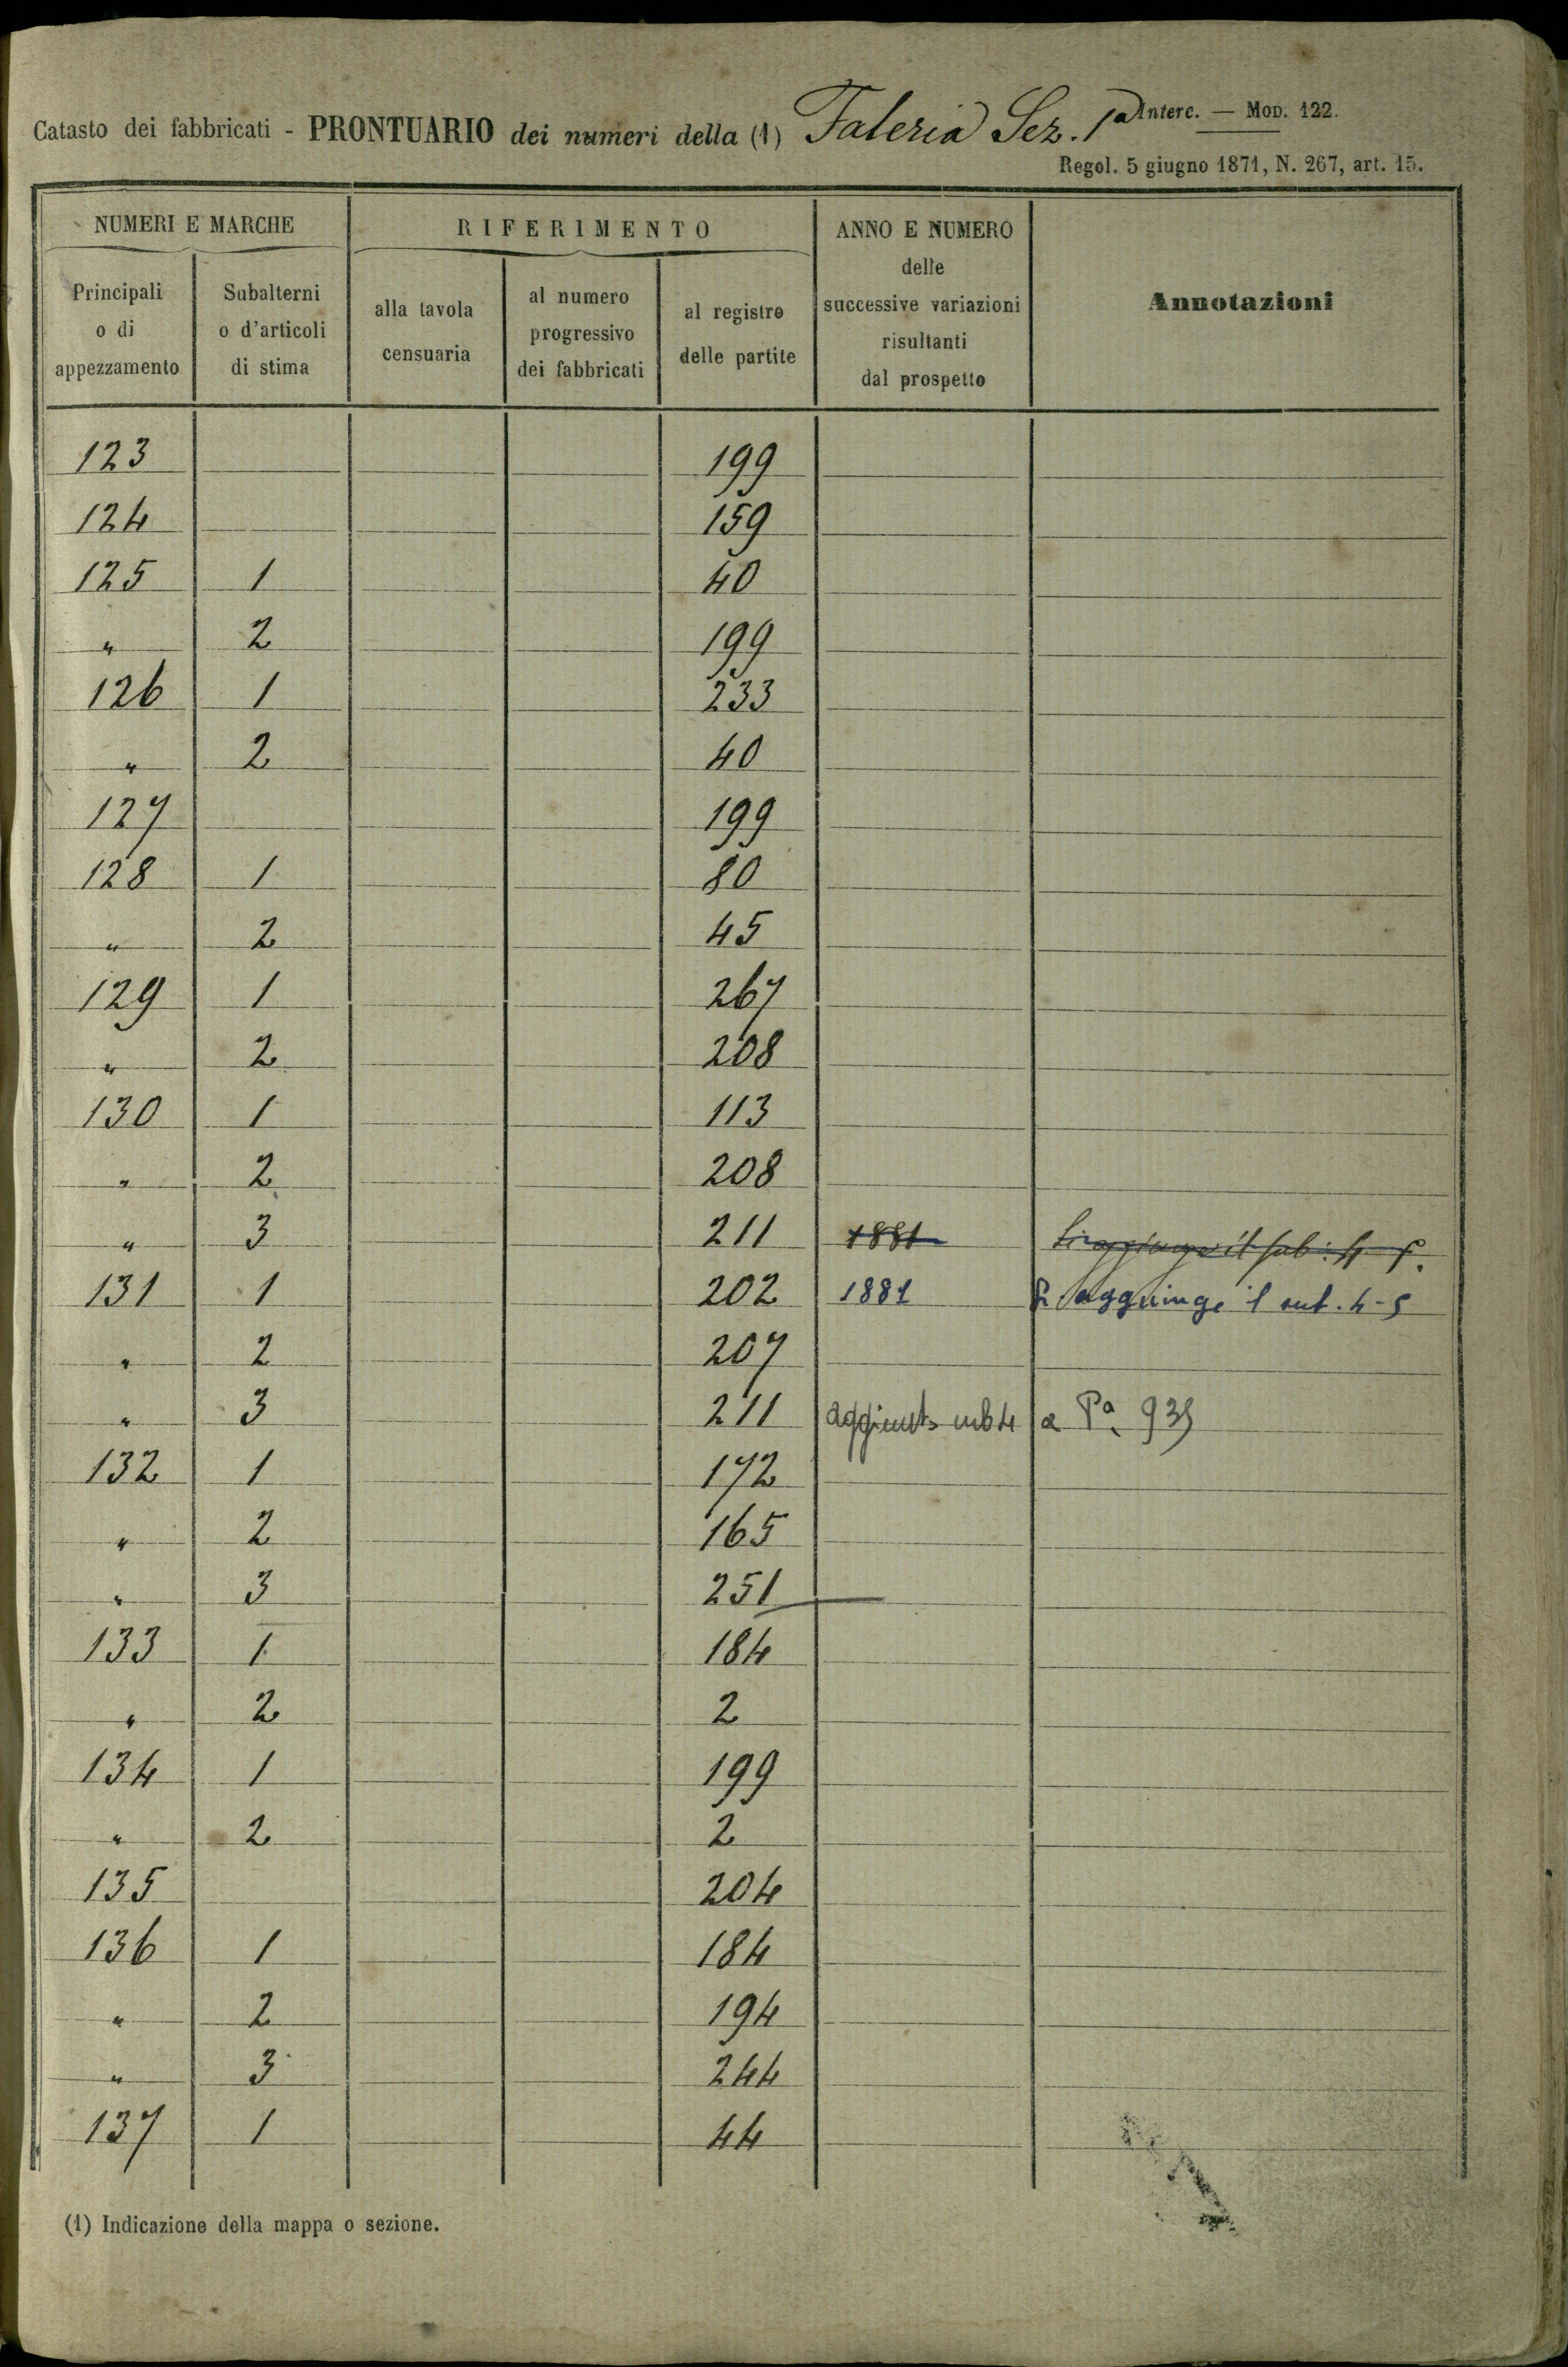 Catasto dei fabbricati - PRONTUARIO dei numeri della (1) Faleria Sez. 1a Interc. — MOD. 122.
Regol. 5 giugno 1871, N. 267, art. 15.
NUMERI E MARCHE RIFERIMENTO ANNO E NUMERO delle successive variazioni risultanti dal prospetto Annotazioni
Principali o di appezzamento Subalterni o d'articoli di stima alla tavola censuaria al numero progressivo dei fabbricati al registro delle partite
123 199
124 159
125 1 40
" 2 199
126 1 233
" 2 40
127 199
128 1 80
" 2 45
129 1 267
" 2 208
130 1 113
" 2 208
" 3 211 1881 Si aggiunge il sub. 4-5.
131 1 202 1881 Si agguinge il sub. 4-5
" 2 207
" 3 211 aggiunto sub 4 a Pa. 935
132 1 172
" 2 165
" 3 251
133 1 184
" 2 2
134 1 199
" 2 2
135 204
136 1 184
" 2 194
" 3 244
137 1 44
(1) Indicazione della mappa o sezione.